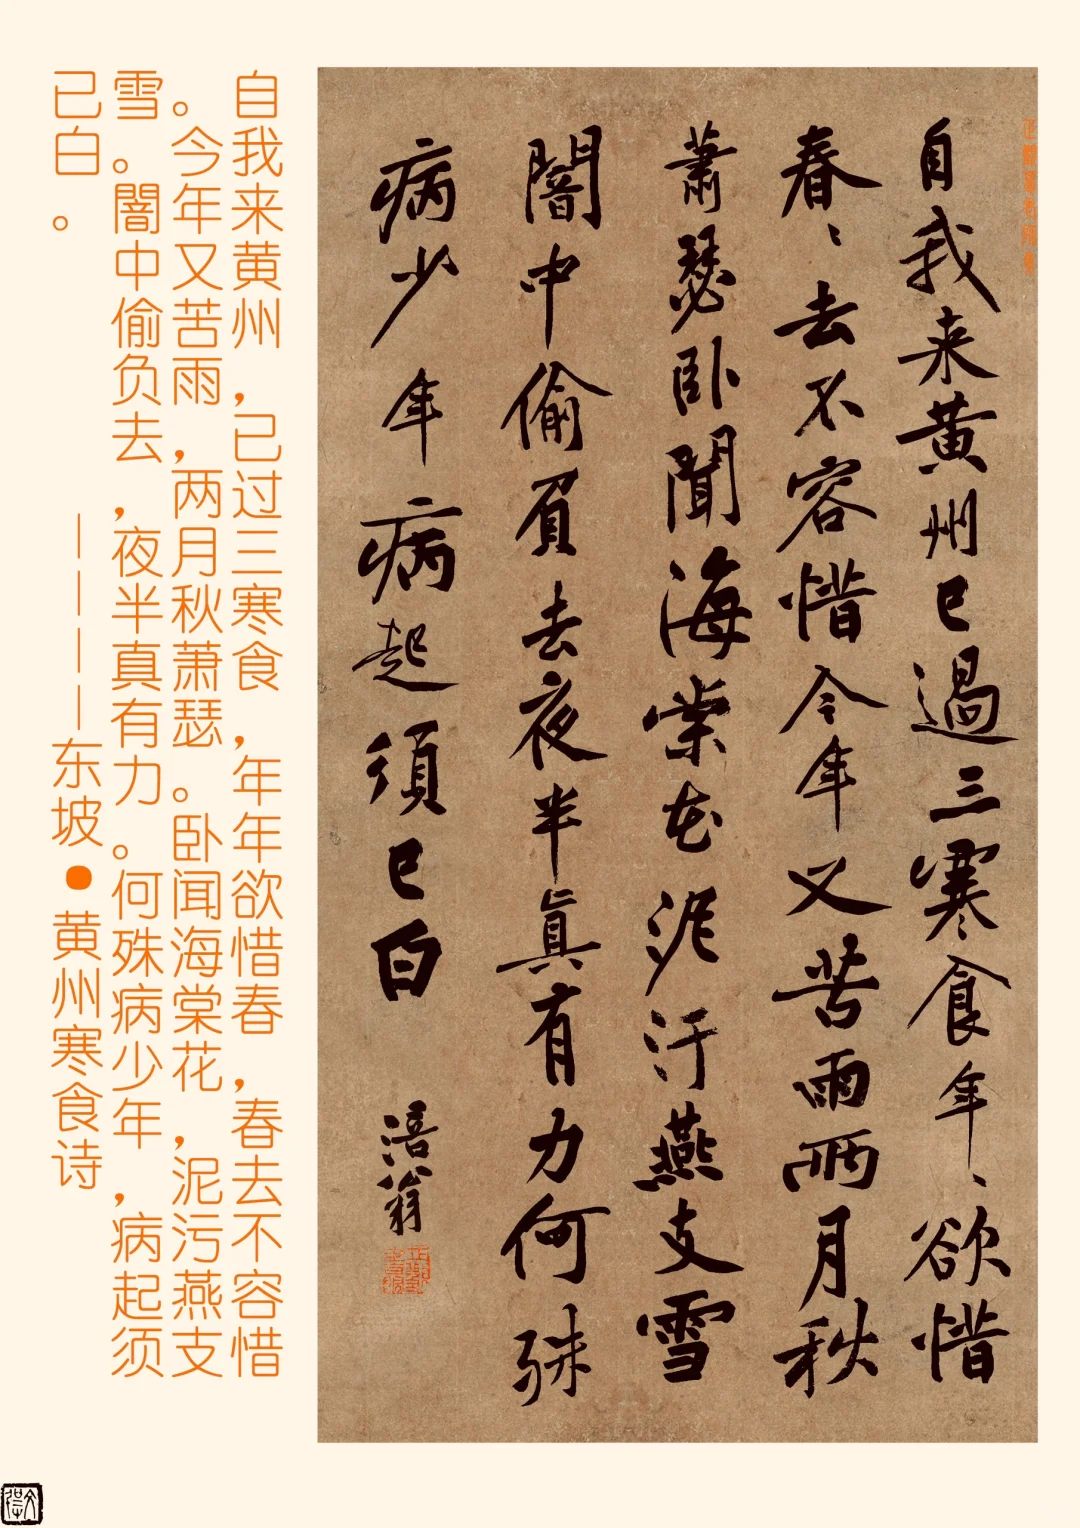 自我来黄州已過三寒食年、欲惜
春、去不容惜今年又苦雨兩月秋
蕭瑟卧聞海棠花泥汙燕支雪
闇中偷負去夜半真有力何殊
病少年病起須已白
涪翁
自我来黄州，已过三寒食，年年欲惜春，春去不容惜
。今年又苦雨，两月秋萧瑟。卧闻海棠花，泥污燕支
雪。闇中偷负去，夜半真有力。何殊病少年，病起须
已白。 ————东坡●黄州寒食诗